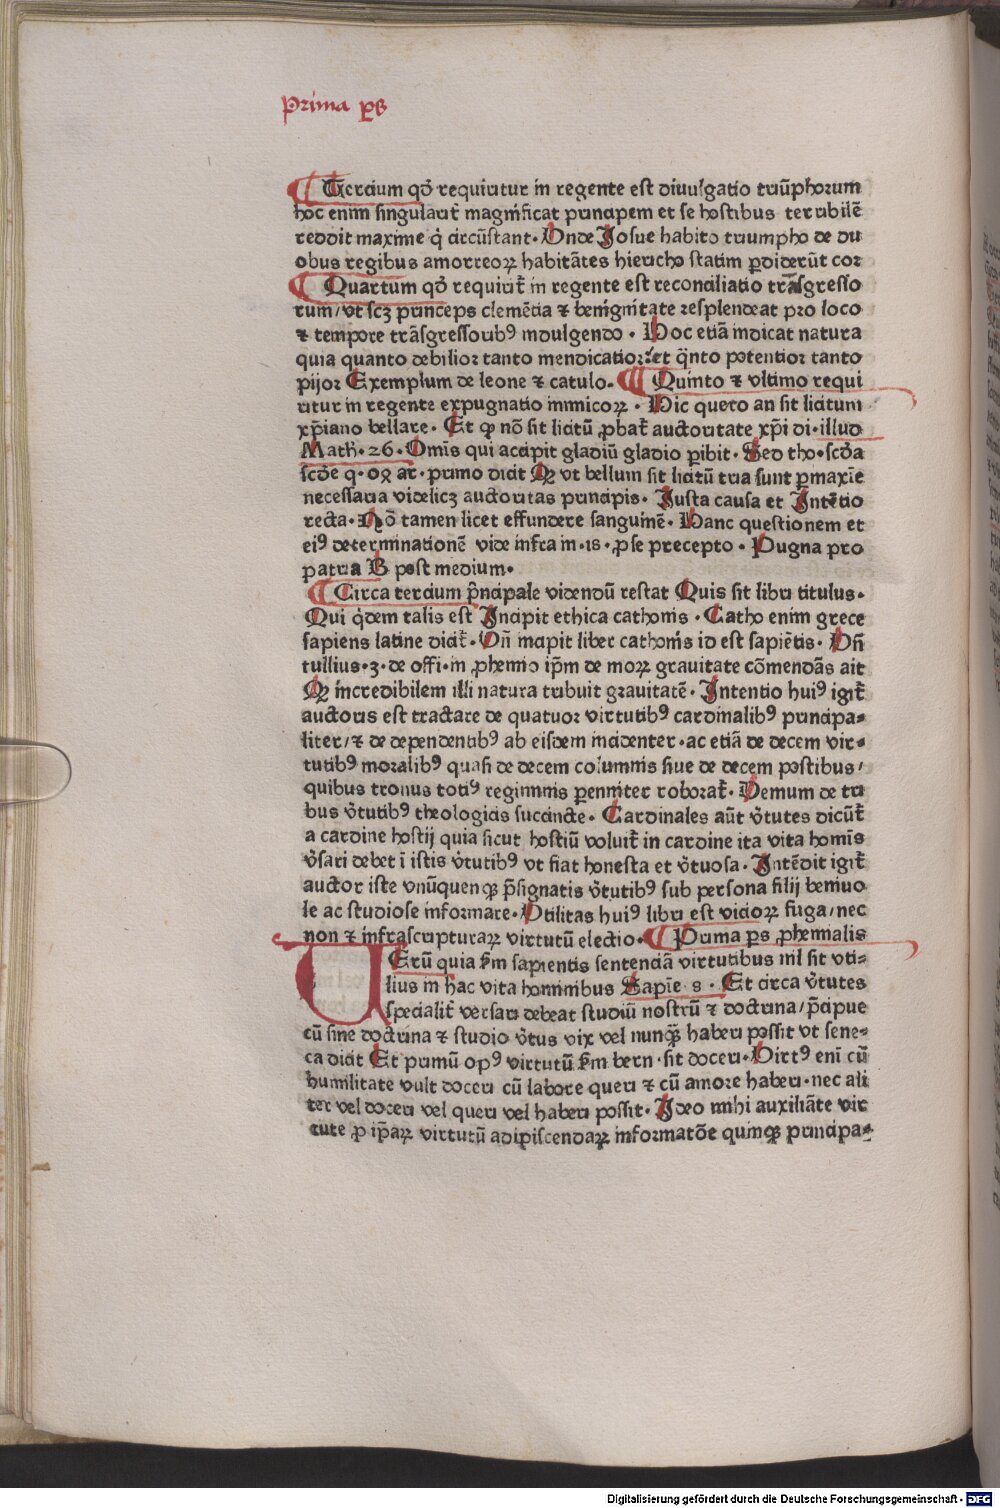 Prima ps
Tercium qđ requiritur in regente est diuulgatio triũphorum
hoc enim singularit̃ magnificat principem et se hostibus terribilẽ
reddit maxime q̇ circũstant. Unde Josue habito triumpho de du
obus regibus amorreoꝝ habitãtes hiericho statim ꝑdiderũt cor
Quartum qđ requirit̃ in regente est reconciliatio trãsgresso
rum/vt scꝫ princeps clemẽtia ⁊ benignitate resplendeat pro loco
⁊ tempore trãsgressoribꝰ indulgendo. Hoc etiã indicat natura
quia quanto debilior tanto mendicatior: et q̃nto potentior tanto
pijor Exemplum de leone ⁊ catulo. Quinto ⁊ vltimo requi
ritur in regente expugnatio inimicoꝝ. Hic quero an sit licitum
xp̃iano bellare. Et ꝙ nõ sit licitũ ꝓbat̃ auctoritate xp̃i di. illud
Math̃. 26. Omĩs qui accipit gladiũ gladio ꝑibit. Sed tho. scđa
scđe q. 0ꝗ ar. primo dicit Qꝫ vt bellum sit licitũ tria sunt ꝑmaxie
necessaria videlicꝫ auctoritas principis. Justa causa et Intẽtio
recta. Nõ tamen licet effundere sanguinẽ. Hanc questionem et
eiꝰ determinationẽ vide infra in .18. ꝓse precepto. Pugna pro
patria B post medium.
Circa tercium p̃ncipale videndũ restat Quis sit libri titulus.
Qui q̇dem talis est Incipit ethica cathonis. Catho enim grece
sapiens latine dicit̃. Vñ incipit liber cathonis id est sapiẽtis. Vñ
tullius.3. de offi. in ꝓhemio ip̃m de moꝝ grauitate cõmendãs ait
Qꝫ incredibilem illi natura tribuit grauitatẽ. Intentio huiꝰ igit̃
auctoris est tractare de quatuor virtutibꝰ cardinalibꝰ principa-
liter/⁊ de dependentibꝰ ab eisdem incidenter. ac etiã de decem vir-
tutibꝰ moralibꝰ quasi de decem columnis siue de decem postibus/
quibus tronus totiꝰ regiminis ꝑenniter roborat̃. Demum de tri
bus v̾tutibꝰ theologicis succincte. Cardinales aũt v̾tutes dicũt̃
a cardine hostij quia sicut hostiũ voluit̃ in cardine ita vita homĩs
v̾sari debet ĩ istis v̾tutibꝰ vt fiat honesta et v̾tuosa. Intẽdit igit̃
auctor iste vnũquenqꝫ p̃signatis v̾tutibꝰ sub persona filij beniuo
le ac studiose informare. Vtilitas huiꝰ libri est vicioꝝ fuga/nec
non ⁊ infrascripturaꝝ virtutũ electio. Prima ps ꝓhemialis
VErũ quia ẜm sapientis sentenciã virtutibus nil sit vti-
lius in hac vita hominibus Sapiẽ. 8. Et circa v̾tutes
specialit̃ versari debeat studiũ nostrũ ⁊ doctrina/p̃cipue
cũ sine doctrina ⁊ studio v̾tus vix vel nunqꝫ̃ haberi possit vt sene-
ca dicit Et primũ opꝰ virtutũ ẜm bern. sit doceri. Virtꝰ eni cũ
humilitate vult doceri cũ labore queri ⁊ cũ amore haberi. nec ali
ter vel doceri vel queri vel haberi possit. Ideo mihi auxiliãte vir
tute ꝓ ip̃aꝝ virtutũ adipiscendaꝝ informatõe quinqꝫ principa-
Digitalisierung gefördert durch die Deutsche Forschungsgemeinschaft - DFG